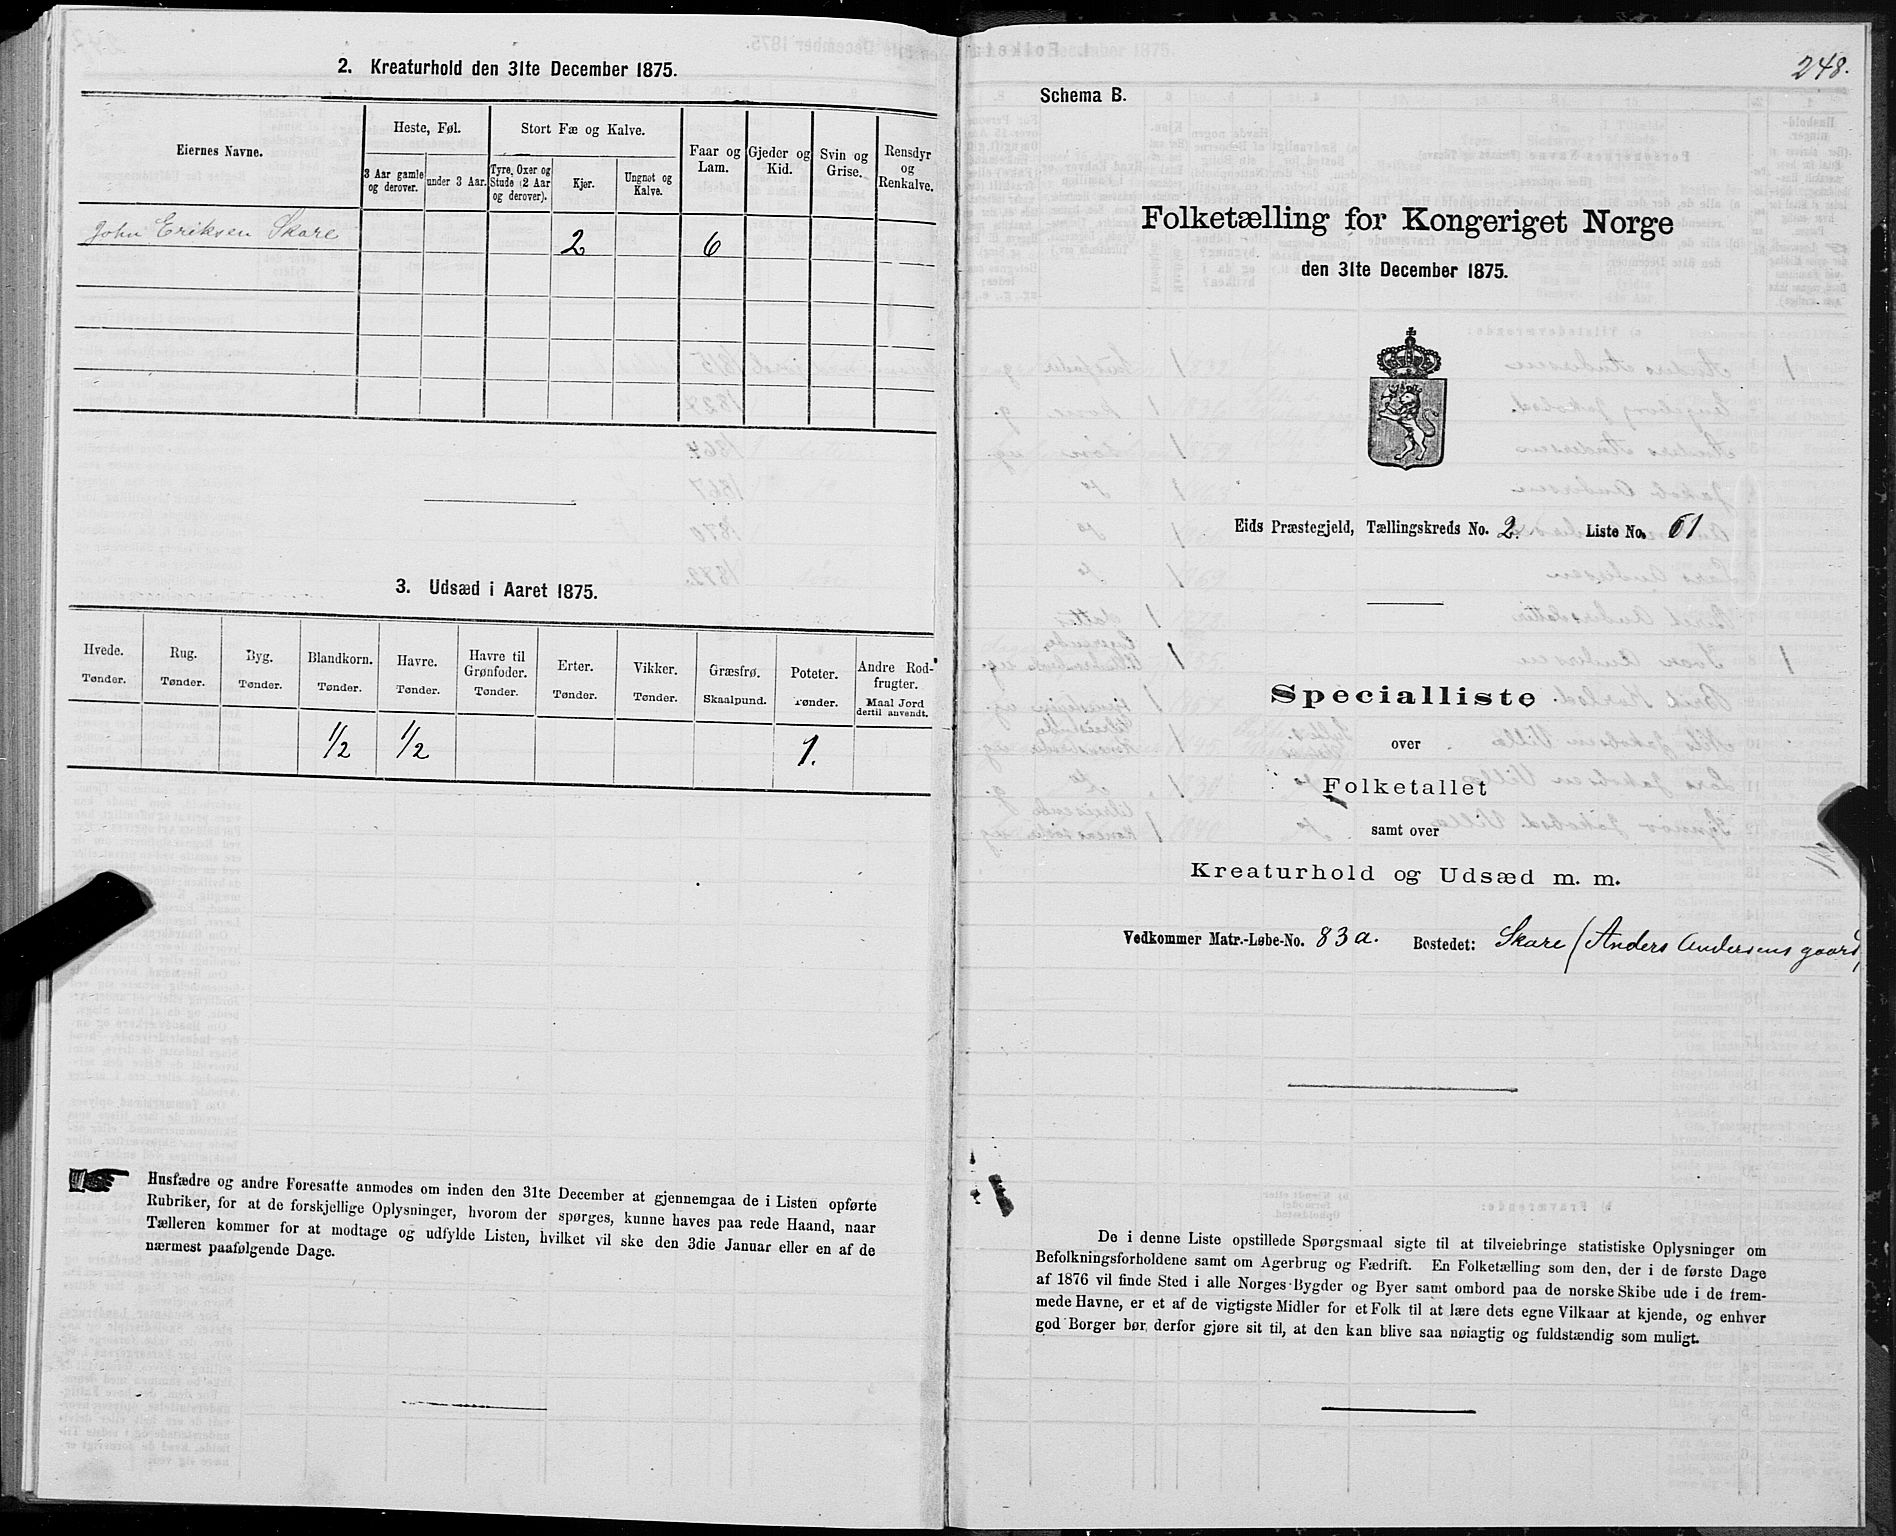 2. Kreaturhold den 31te December 1875.
Eiernes Navne.
Heste, Føl.
Stort Fæ og Kalve.
Faar og Lam.
Gjeder og Kid.
Svin og Grise.
Rensdyr og Renkalve.
3 Aar gamle og derover.
under 3 Aar.
Tyre, Oxer og Stude (2 Aar og derover).
Kjør.
Ungnøt og Kalve.
John Eriksen Skare 2 6
3. Udsæd i Aaret 1875.
Hvede. Rug. Byg. Blandkorn. Havre. Havre til Grønfoder. Erter. Vikker. Græsfrø. Poteter. Andre Rodfrugter.
Tønder. Tønder. Tønder. Tønder. Tønder. Tønder. Tønder. Tønder. Skaalpund. Tønder. Maal Jord dertil anvendt.
1/2 1/2 1.
Husfædre og andre Foresatte anmodes om inden den 31te December at gjennemgaa de i Listen opførte
Rubriker, for at de forskjellige Oplysninger, hvorom der spørges, kunne haves paa rede Haand, naar
Tælleren kommer for at modtage og udfylde Listen, hvilket vil ske den 3die Januar eller en af de
nærmest paafølgende Dage.
248.
Schema B.
Folketælling for Kongeriget Norge
den 31te December 1875.
Eids Præstegjeld, Tællingskreds No. 2. Liste No. 61
Specialliste
over
Folketallet
samt over
Kreaturhold og Udsæd m. m.
Vedkommer Matr.-Løbe-No. 83a. Bostedet: Skare (Anders Andersens gaard)
De i denne Liste opstillede Spørgsmaal sigte til at tilveiebringe statistiske Oplysninger om
Befolkningsforholdene samt om Agerbrug og Fædrift. En Folketælling som den, der i de første Dage
af 1876 vil finde Sted i alle Norges Bygder og Byer samt ombord paa de norske Skibe ude i de frem-
mede Havne, er et af de vigtigste Midler for et Folk til at lære dets egne Vilkaar at kjende, og enhver
god Borger bør derfor gjøre sit til, at den kan blive saa nøiagtig og fuldstændig som muligt.